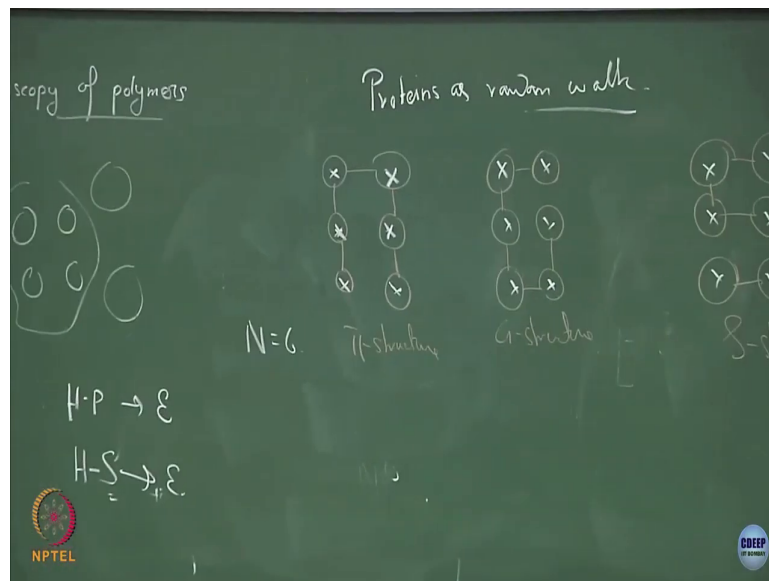 scopy of polymers
Proteins as random walk.
N=6.
π-structure
G-structure
S-s
H·P → ε
H-S → +ε.
NPTEL
CDEEP
IIT BOMBAY